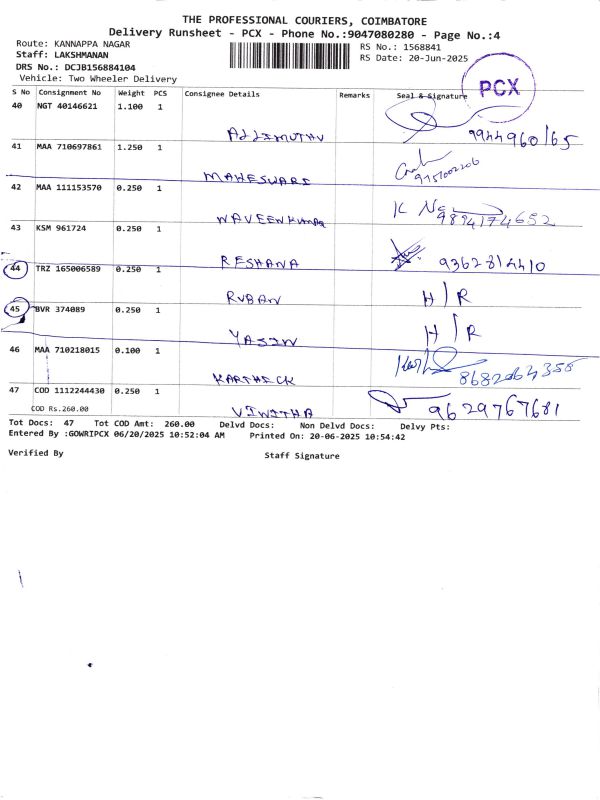 THE PROFESSIONAL COURIERS, COIMBATORE
Delivery Runsheet - PCX - Phone No.:9047080280 - Page No.:4
Route: KANNAPPA NAGAR
Staff: LAKSHMANAN
DRS No.: DCJB156884104
Vehicle: Two Wheeler Delivery
RS No.: 1568841
RS Date: 20-Jun-2025
PCX
S No Consignment No Weight PCS Consignee Details Remarks Seal & Signature
40 NGT 40146621 1.100 1
ALLIMUTHU 9944960165
41 MAA 710697861 1.250 1
MAHESWARI
42 MAA 111153570 0.250 1
NAVEENKUMAR K 9894174652
43 KSM 961724 0.250 1
RESHANA 9362814410
44 TRZ 165006589 0.250 1
RUBAN H/R
45 BVR 374089 0.250 1
YASIN H/R
46 MAA 710218015 0.100 1
KARTHECK 8682064358
47 COD 1112244430 0.250 1
COD Rs.260.00
VINITHA 9629767681
Tot Docs: 47 Tot COD Amt: 260.00 Delvd Docs: Non Delvd Docs: Delvy Pts:
Entered By :GOWRIPCX 06/20/2025 10:52:04 AM Printed On: 20-06-2025 10:54:42
Verified By Staff Signature